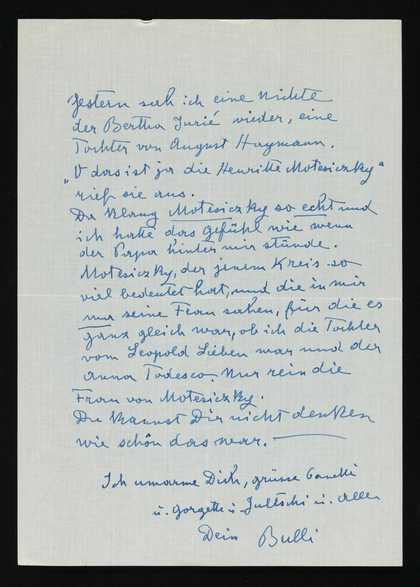 Gestern sah ich eine Nichte
der Bertha Jurié wieder, eine
Tochter von August Haymann.
„O das ist ja die Henriette Motesiczky"
rief sie aus.
Da klang Motesiczky so echt und
ich hatte das Gefühl wie wenn
der Papa hinter mir stünde.
Motesiczky, der jenem Kreis so
viel bedeutet hat, und die in mir
nur seine Frau sahen, für die es
ganz gleich war, ob ich die Tochter
vom Leopold Lieben war und der
Anna Todesco. Nur rein die
Frau von Motesiczky.
Du kannst Dir nicht denken
wie schön das war. —
Ich umarme Dich, grüsse Canetti
u. Gorgette u. Jultschi u. Alle
Dein Bulli